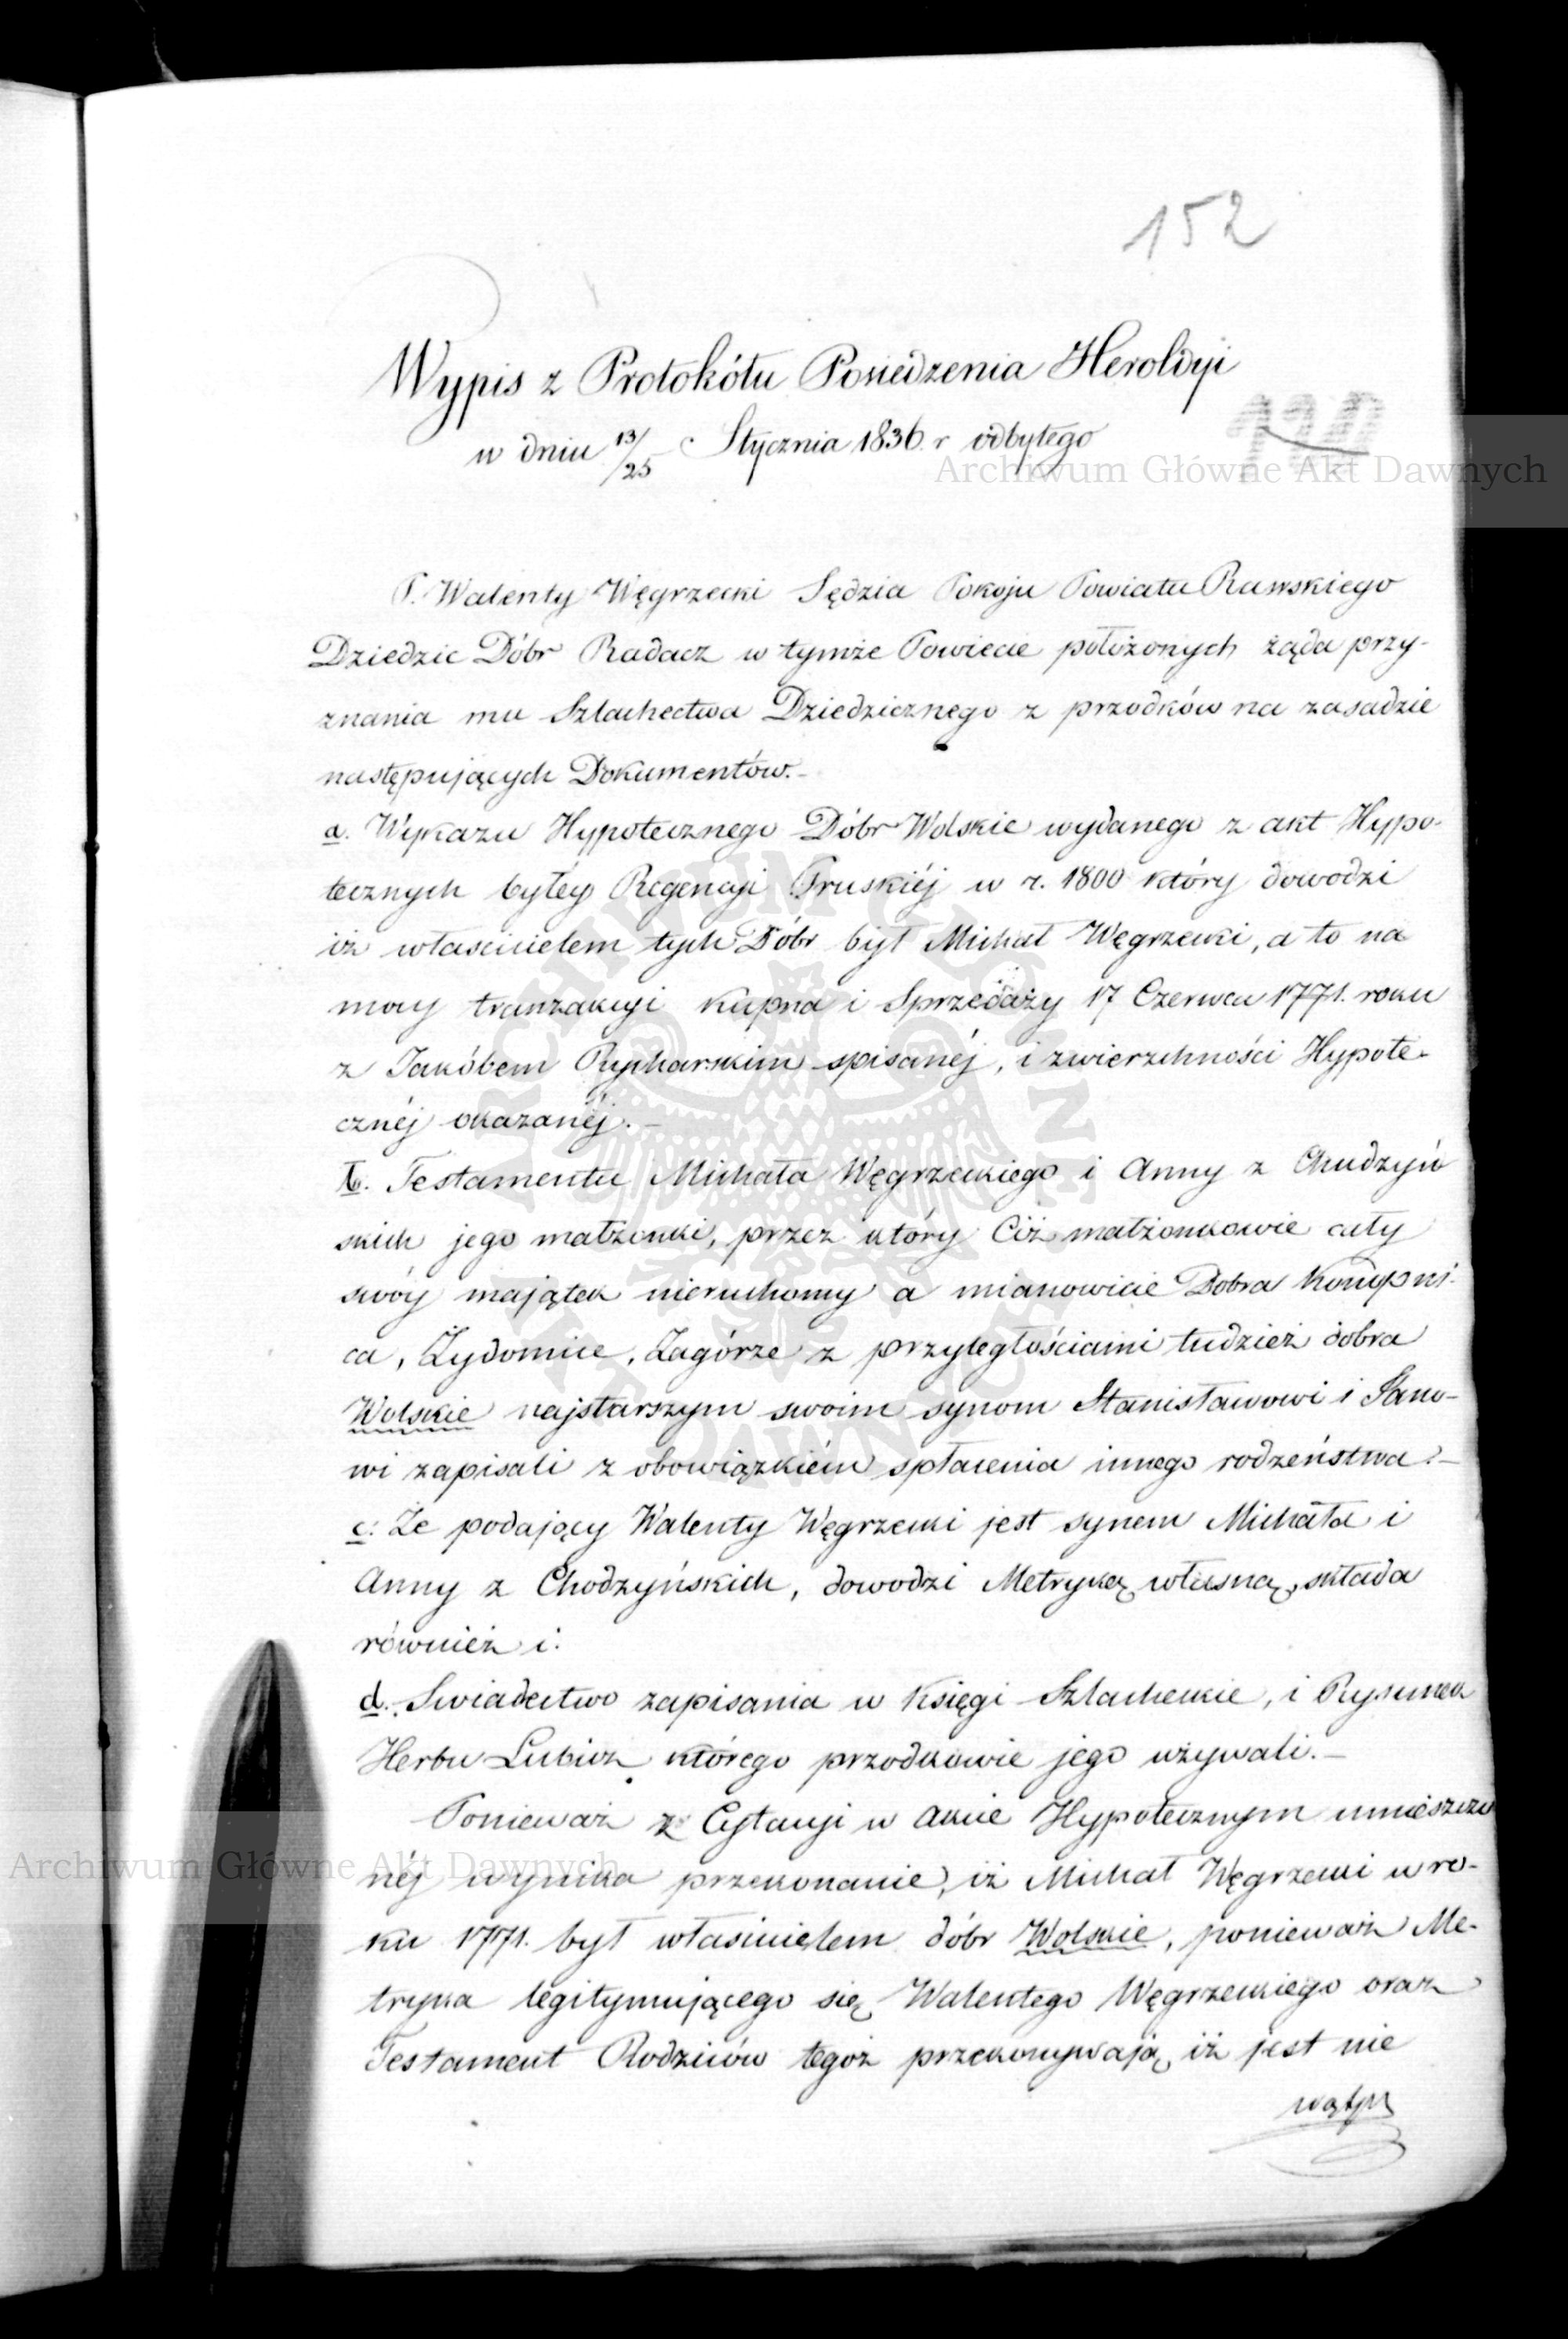 152
Wypis z Protokółu Posiedzenia Heroldyi
w dniu 13/25 Stycznia 1836 r odbytego
Archiwum Główne Akt Dawnych
P. Walenty Węgrzecki Sędzia Pokoju Powiatu Rawskiego
Dziedzic Dóbr Radacz w tymże Powiecie położonych żąda przy-
znania mu Szlachectwa Dziedzicznego z przodków na zasadzie
następujących Dokumentów.-
a. Wykazu Hypotecznego Dóbr Wolskie wydanego z akt Hypo-
tecznych byłey Regencyi Pruskiéj w r. 1800 który dowodzi
iż własścicielem tych Dóbr był Michał Węgrzecki, a to na
mocy tranzakcyi kupna i Sprzedaży 17 Czerwca 1771. roku
z Jakóbem Rycharskim spisanéj, i zwierzchności Hypote-
cznéj okazanéj.-
b. Testamentu Michała Węgrzeckiego i Anny z Chudzyń
skich jego małżonki, przez który Ciż małżonkowie cały
swóy majątek nieruchomy a mianowicie Dobra Konopni-
ca, Żydomice, Zagórze z przyległościami tudzież dobra
Wolskie najstarszym swoim synom Stanisławowi i Jano-
wi zapisali z obowiązkiém spłacenia innego rodzeństwa.-
c. Że podający Walenty Węgrzecki jest synem Michała i
Anny z Chodzyńskich, dowodzi Metryką własną, składa
również i.
d. Swiadectwo zapisania w Księgi Szlacheckie, i Rysunek
Herbu Lubicz którego przodkowie jego używali.-
Ponieważ z Cytacyi w akcie Hypotecznym umieszczo
néj wynika przekonanie, iż Michał Węgrzecki w ro-
Archiwum Główne Akt Dawnych
ku 1771. był własicielem dóbr Wolskie, ponieważ Me-
tryka legitymującego się Walentego Węgrzeckiego oraz
Testament Rodziców tegoż przekonywają, iż jest nie
wątpl
ARCHIWUM GŁÓWNE AKT DAWNYCH